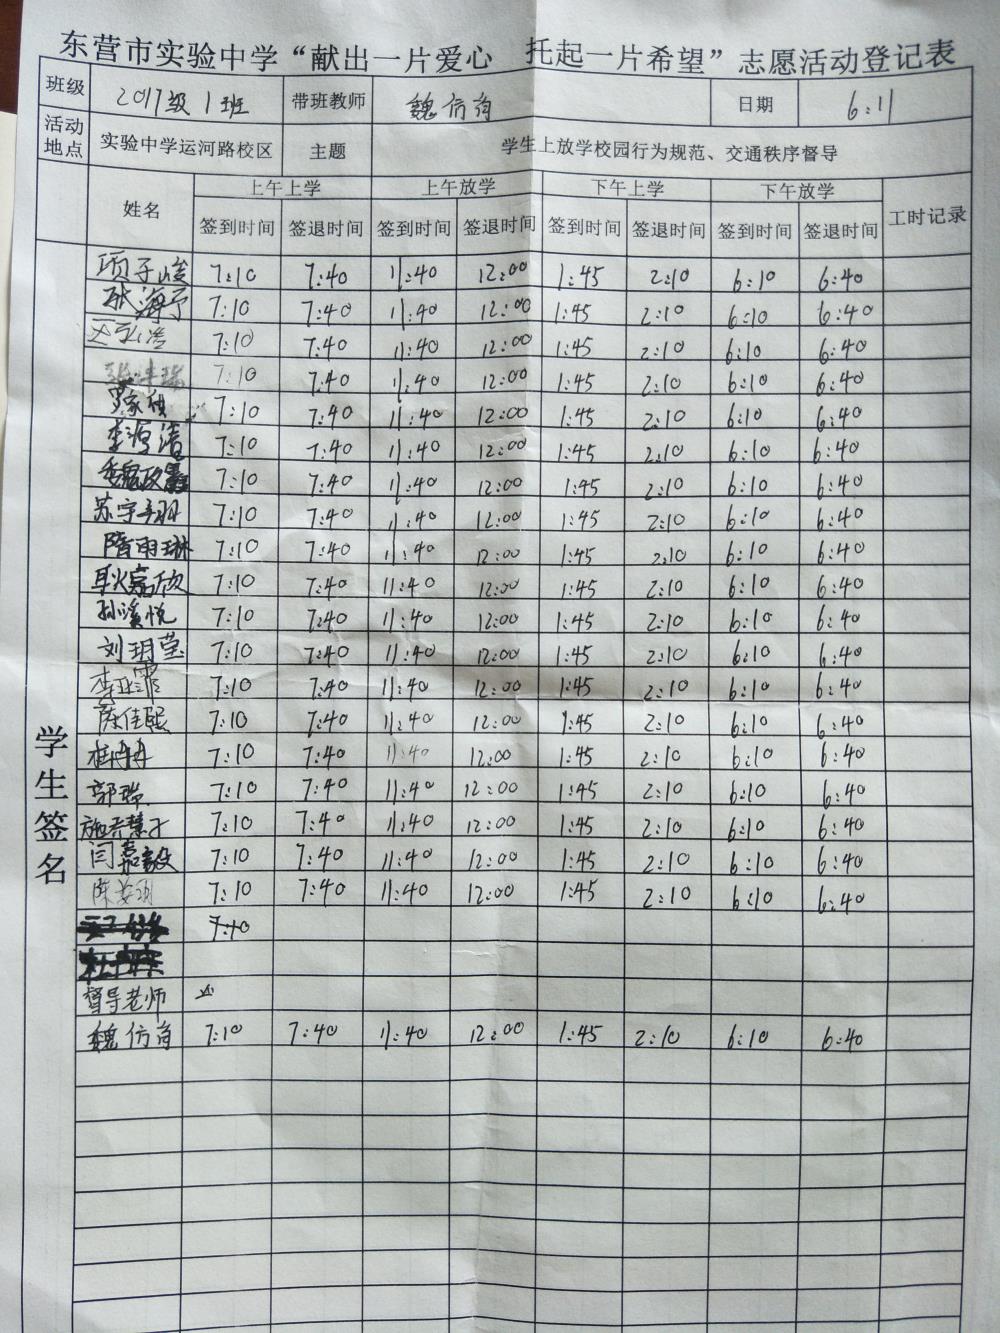 东营市实验中学“献出一片爱心 托起一片希望”志愿活动登记表
班级 2017级1班 带班教师 魏仿 日期 6:11
活动地点 实验中学运河路校区 主题 学生上放学校园行为规范、交通秩序督导
姓名 上午上学 上午放学 下午上学 下午放学 工时记录
签到时间 签退时间 签到时间 签退时间 签到时间 签退时间 签到时间 签退时间
学生签名
项子峻 7:10 7:40 11:40 12:00 1:45 2:10 6:10 6:40
7:10 7:40 11:40 12:00 1:45 2:10 6:10 6:40
7:10 7:40 11:40 12:00 1:45 2:10 6:10 6:40
7:10 7:40 11:40 12:00 1:45 2:10 6:10 6:40
7:10 7:40 11:40 12:00 1:45 2:10 6:10 6:40
李海清 7:10 7:40 11:40 12:00 1:45 2:10 6:10 6:40
7:10 7:40 11:40 12:00 1:45 2:10 6:10 6:40
苏宇羽 7:10 7:40 11:40 12:00 1:45 2:10 6:10 6:40
隋雨琳 7:10 7:40 11:40 12:00 1:45 2:10 6:10 6:40
耿嘉欣 7:10 7:40 11:40 12:00 1:45 2:10 6:10 6:40
孙溪悦 7:10 7:40 11:40 12:00 1:45 2:10 6:10 6:40
刘玥莹 7:10 7:40 11:40 12:00 1:45 2:10 6:10 6:40
7:10 7:40 11:40 12:00 1:45 2:10 6:10 6:40
7:10 7:40 11:40 12:00 1:45 2:10 6:10 6:40
7:10 7:40 11:40 12:00 1:45 2:10 6:10 6:40
郭瑞 7:10 7:40 11:40 12:00 1:45 2:10 6:10 6:40
7:10 7:40 11:40 12:00 1:45 2:10 6:10 6:40
闫嘉毅 7:10 7:40 11:40 12:00 1:45 2:10 6:10 6:40
7:10 7:40 11:40 12:00 1:45 2:10 6:10 6:40
7:10
督导老师
魏仿 7:10 7:40 11:40 12:00 1:45 2:10 6:10 6:40